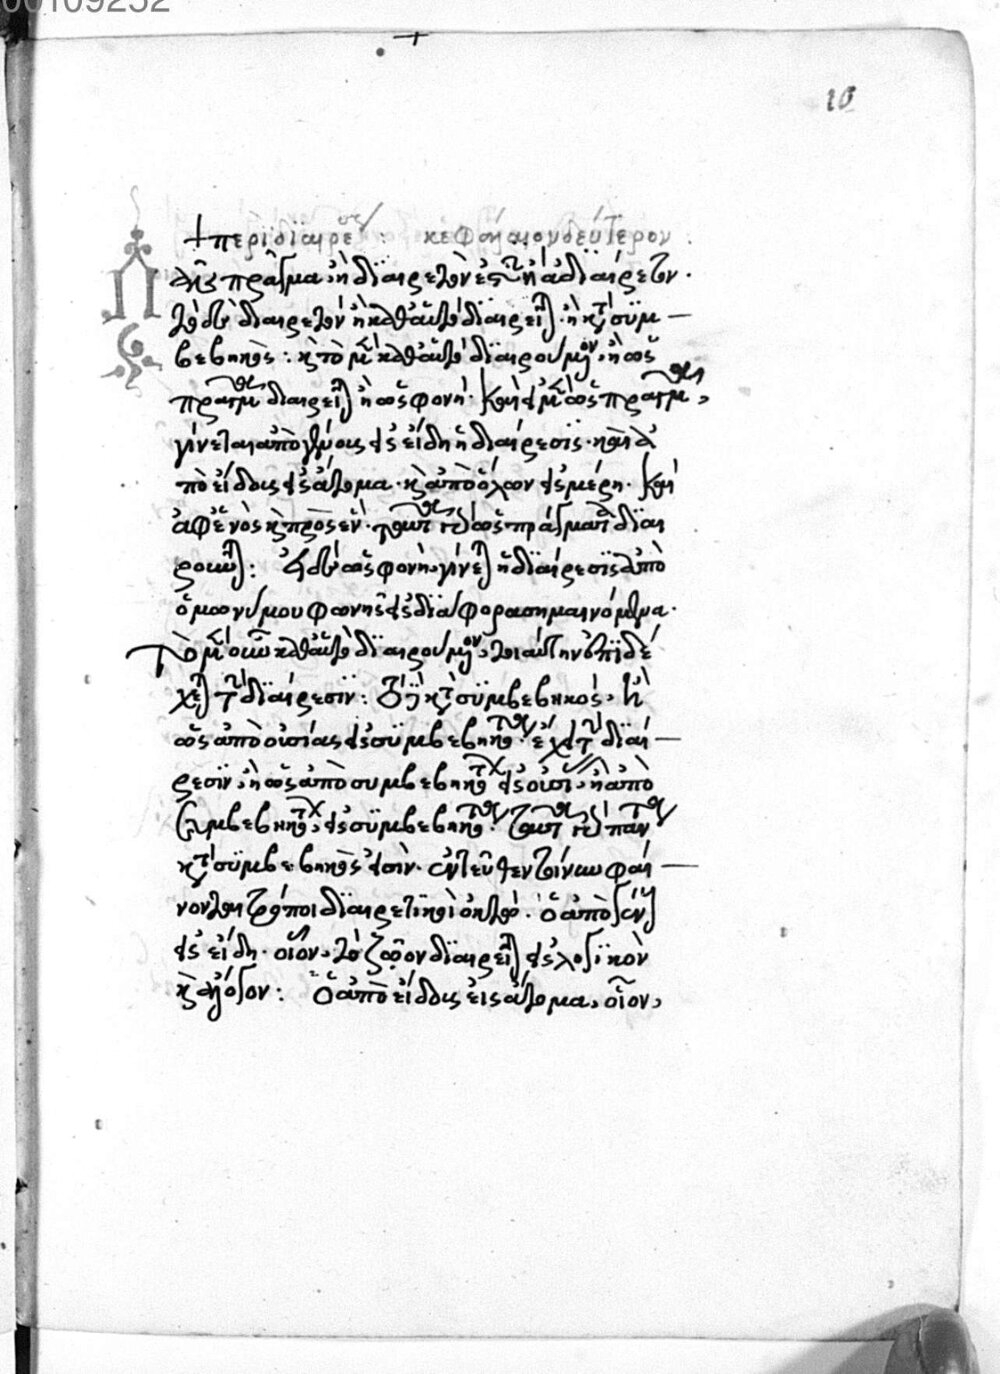 00109252
10
+ περὶ διαιρέσεως : κεφάλαιον δεύτερον .
Πᾶν πρᾶγμα, ἢ διαιρετὸν ἐστὶν ἢ ἀδιαίρετον ·
τὸ δὲ διαιρετὸν ἢ καθαὑτὸ διαιρεῖται · ἢ κατὰ συμ
βεβηκός : καὶ τὸ μὲν καθαὑτὸ διαιρούμενον, ἢ ὡς
πράγματα διαιρεῖται ἢ ὡς φονή · καὶ εἰ μὲν ὡς πράγματα,
γίνεται ἀπὸ γένους εἰς εἴδη ἡ διαίρεσις · καὶ ἀ
πὸ εἴδους εἰς ἄτομα · καὶ ἀπὸ ὅλου εἰς μέρη · καὶ
ἀφ' ἑνὸς καὶ πρὸς ἕν · ταῦτα γὰρ ὡς πράγματα διαι
ροῦνται : εἰ δὲ ὡς φονή, γίνεται ἡ διαίρεσις ἀπὸ
ὁμωνύμου φωνῆς εἰς διάφορα σημαινόμενα ·
Τὸ μὲν οὖν καθαὑτὸ διαιρούμενον, τοιαύτην ἐπιδέ
χεται τὴν διαίρεσιν : τὸ δὲ κατὰ συμβεβηκός, ἢ
ὡς ἀπὸ οὐσίας εἰς συμβεβηκότα · ἔχει τὴν διαί
ρεσιν, ἢ ὡς ἀπὸ συμβεβηκότος εἰς οὐσίας, ἢ ἀπὸ
συμβεβηκότος, εἰς συμβεβηκότα · ταῦτα γὰρ πάντα
κατὰ συμβεβηκός εἰσιν · ἐντεῦθεν γίνων φαί
νονται τρόποι διαιρετικοὶ ὀκτώ · ὁ ἀπὸ γένους
εἰς εἴδη · οἷον, τὸ ζῷον διαιρεῖται εἰς λογικὸν
καὶ ἄλογον : Ὁ ἀπὸ εἴδους εἰς ἄτομα, οἷον,